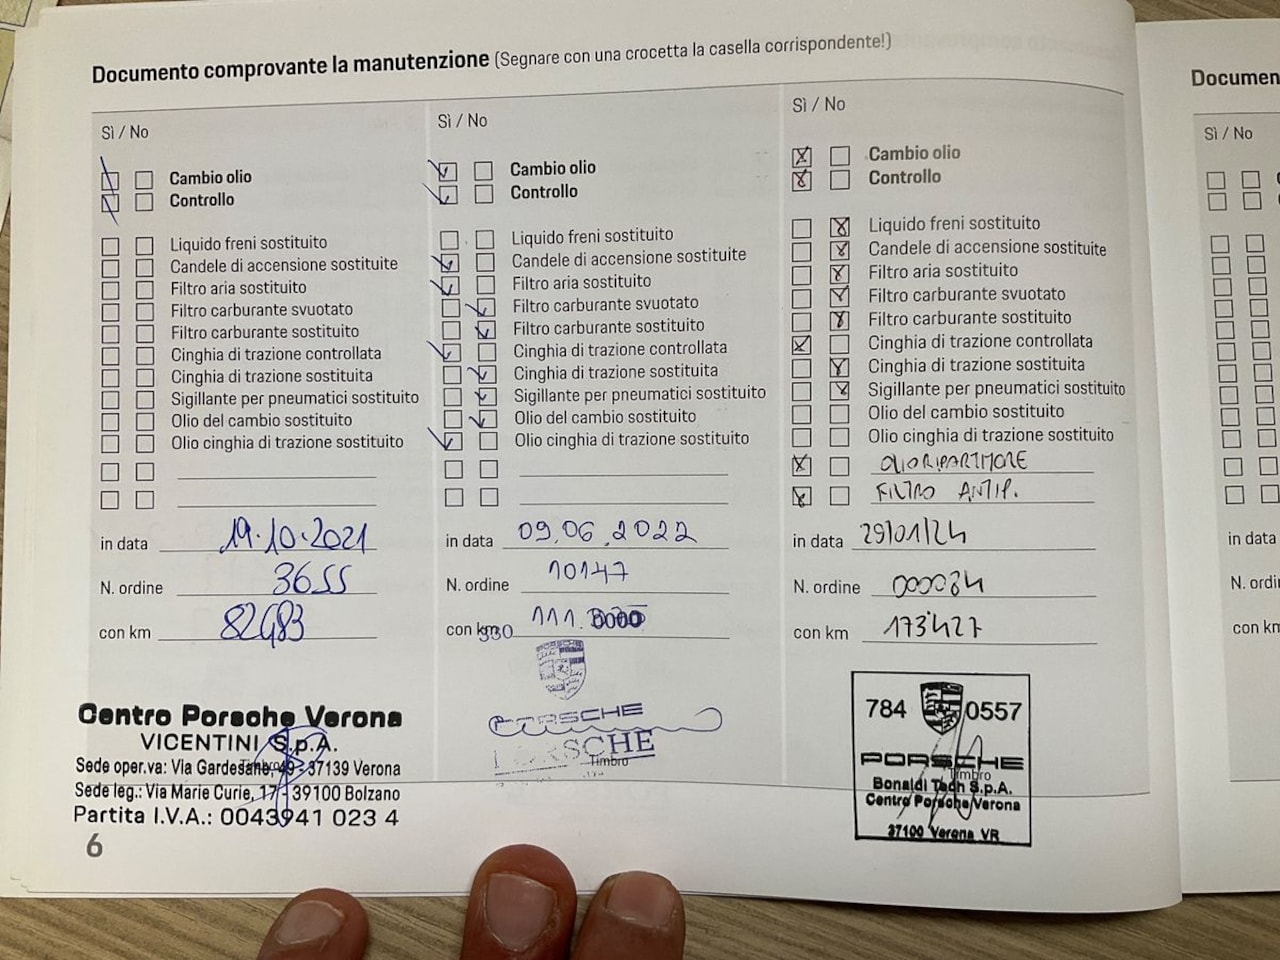 Documento comprovante la manutenzione (Segnare con una crocetta la casella corrispondente!)
Sì / No
Cambio olio
Controllo
Liquido freni sostituito
Candele di accensione sostituite
Filtro aria sostituito
Filtro carburante svuotato
Filtro carburante sostituito
Cinghia di trazione controllata
Cinghia di trazione sostituita
Sigillante per pneumatici sostituito
Olio del cambio sostituito
Olio cinghia di trazione sostituito
in data 19.10.2021
N. ordine 3655
con km 82483
Centro Porsche Verona
VICENTINI S.p.A.
Timbro
Sede oper.va: Via Gardesane, 49 - 37139 Verona
Sede leg.: Via Marie Curie, 17 - 39100 Bolzano
Partita I.V.A.: 0043941 023 4
6
Sì / No
Cambio olio
Controllo
Liquido freni sostituito
Candele di accensione sostituite
Filtro aria sostituito
Filtro carburante svuotato
Filtro carburante sostituito
Cinghia di trazione controllata
Cinghia di trazione sostituita
Sigillante per pneumatici sostituito
Olio del cambio sostituito
Olio cinghia di trazione sostituito
in data 09.06.2022
N. ordine 10147
con km 111.
PORSCHE
PORSCHE
Timbro
Sì / No
Cambio olio
Controllo
Liquido freni sostituito
Candele di accensione sostituite
Filtro aria sostituito
Filtro carburante svuotato
Filtro carburante sostituito
Cinghia di trazione controllata
Cinghia di trazione sostituita
Sigillante per pneumatici sostituito
Olio del cambio sostituito
Olio cinghia di trazione sostituito
OLIO RIPARTITORE
FILTRO ANTIP.
in data 29/01/24
N. ordine 000084
con km 173'427
784 0557
PORSCHE
Timbro
Bonaldi Tech S.p.A.
Centro Porsche Verona
37100 Verona VR
Documen
Sì / No
in data
N. ordi
con km